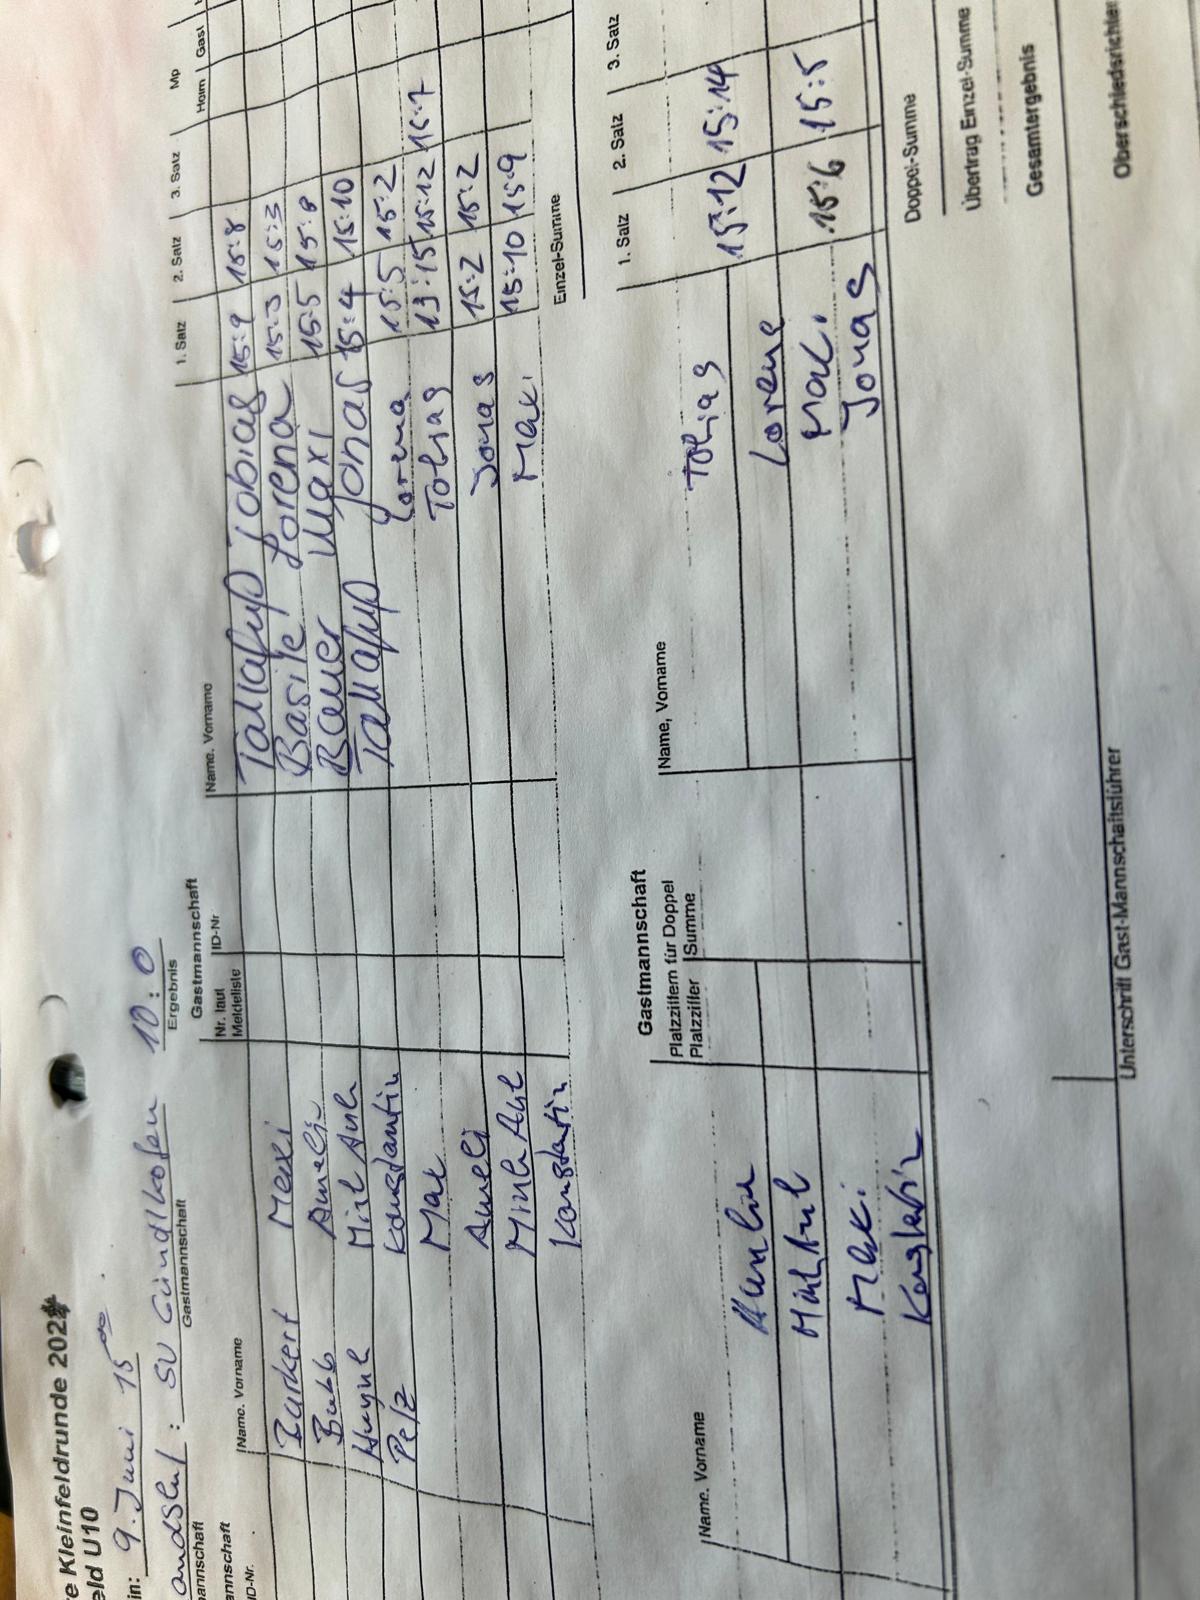 e Kleinfeldrunde 2024
eld U10
in: 9. Juni 15
andshut : SU Gündlkofen 10:0
annschaft Gastmannschaft Ergebnis
annschaft Gastmannschaft
ID-Nr. Name. Vorname Nr. laut Meldeliste ID-Nr Name. Vorname 1. Satz 2. Satz 3. Satz Mp Heim Gast
Burkert Maxi Tallafuß Tobias 15:9 15:8
Bubb Ameli Basile Lorena 15:3 15:3
Huynh Minh Anh Bauer Maxi 15:5 15:8
Pelz Konstantin Tallafuß Jonas 15:4 15:10
Max Lorena 15:5 15:2
Ameli Tobias 13:15 15:12 15:7
Minh Anh Jonas 15:2 15:2
Konstantin Maxi 15:10 15:9
Einzel-Summe
Gastmannschaft
Name. Vorname Platzziffern für Doppel Platzziffer Summe Name, Vorname 1. Satz 2. Satz 3. Satz
Tobias 15:12 15:14
Minh Anh Lorena
Maxi Maxi 15:6 15:5
Konstantin Jonas
Doppel-Summe
Übertrag Einzel-Summe
Gesamtergebnis
Unterschrift Gast-Mannschaftsführer Oberschiedsrichter